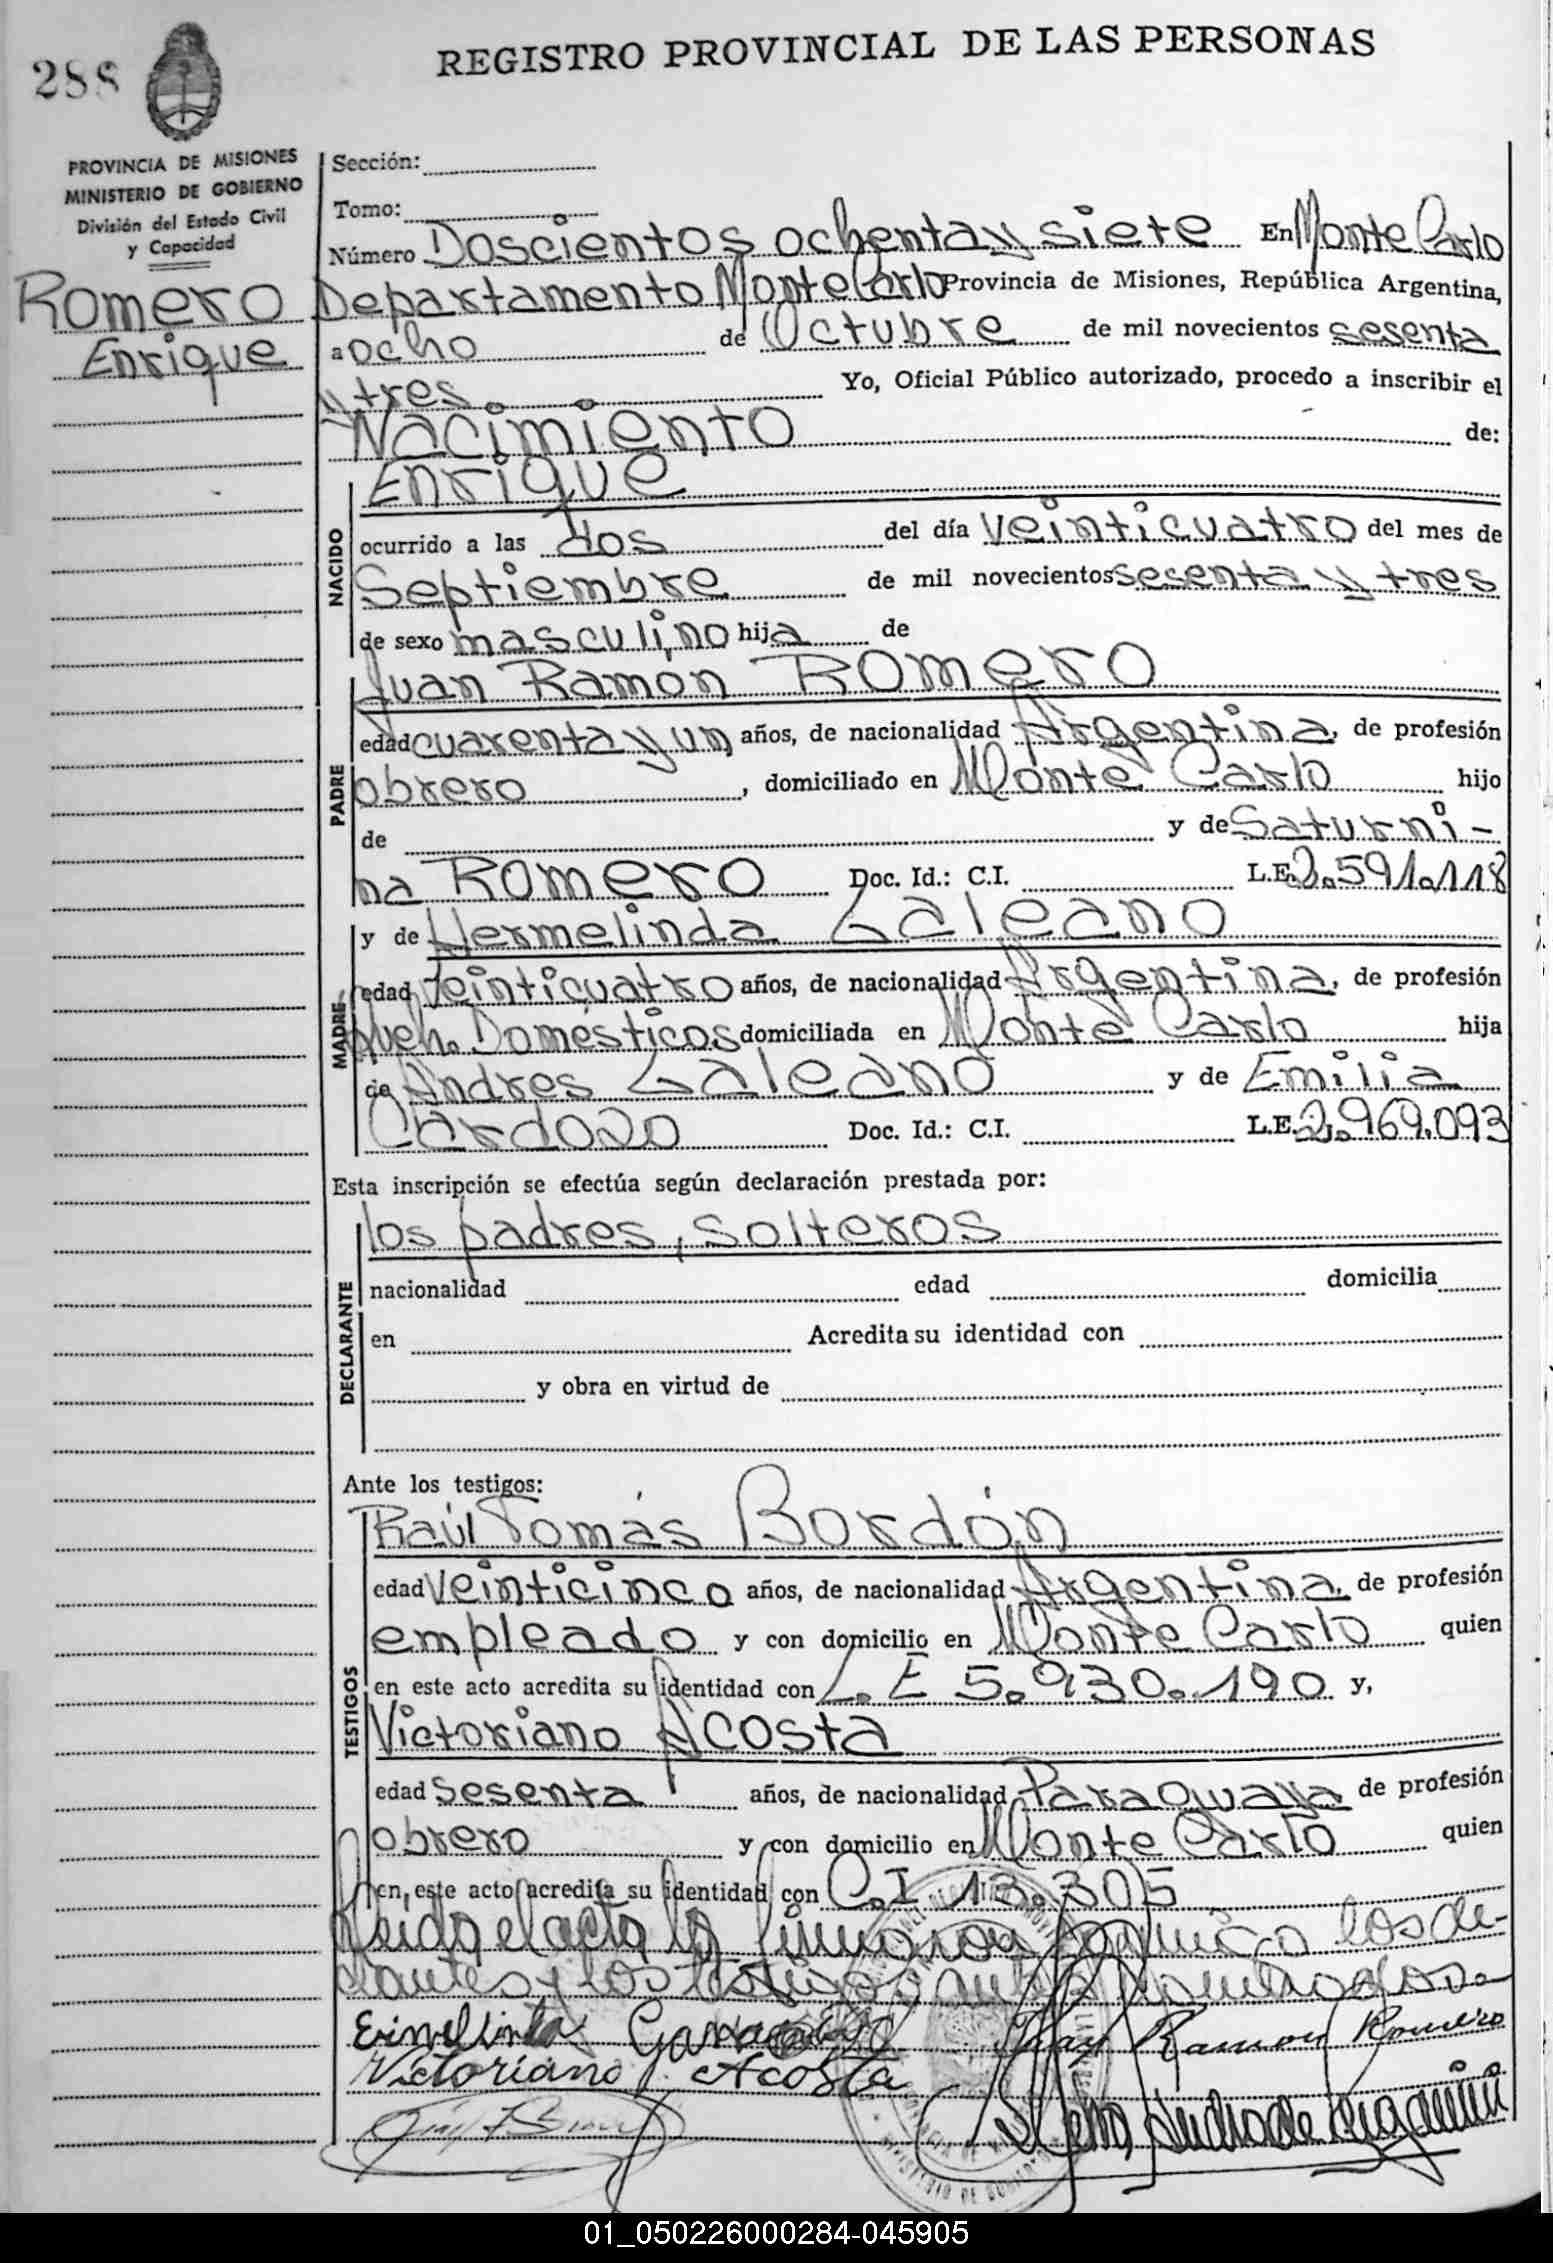 288
REGISTRO PROVINCIAL DE LAS PERSONAS
PROVINCIA DE MISIONES
MINISTERIO DE GOBIERNO
División del Estado Civil
y Capacidad
Romero
Enrique
Sección:
Tomo:
Número Doscientos ochenta y siete En Monte Carlo
Departamento Monte Carlo Provincia de Misiones, República Argentina,
a ocho de Octubre de mil novecientos sesenta
y tres Yo, Oficial Público autorizado, procedo a inscribir el
Nacimiento de:
Enrique
NACIDO
ocurrido a las dos del día veinticuatro del mes de
Septiembre de mil novecientos sesenta y tres
de sexo masculino hija de
Juan Ramon Romero
PADRE
edad cuarenta y un años, de nacionalidad Argentina, de profesión
obrero, domiciliado en Monte Carlo hijo
de y de Saturni-
na Romero Doc. Id.: C.I. L.E. 2.591.118
y de Hermelinda Galeano
MADRE
edad veinticuatro años, de nacionalidad Argentina, de profesión
Queh. Domésticos domiciliada en Monte Carlo hija
de Andres Galeano y de Emilia
Cardozo Doc. Id.: C.I. L.E. 2.969.093
Esta inscripción se efectúa según declaración prestada por:
los padres, solteros
DECLARANTE
nacionalidad edad domicilia
en Acredita su identidad con
y obra en virtud de
Ante los testigos:
Raúl Tomás Bordón
TESTIGOS
edad veinticinco años, de nacionalidad Argentina, de profesión
empleado y con domicilio en Monte Carlo quien
en este acto acredita su identidad con L.E 5.930.190 y,
Victoriano Acosta
edad Sesenta años, de nacionalidad Paraguaya de profesión
obrero y con domicilio en Monte Carlo quien
en este acto acredita su identidad con C.I 13.305
Leido el acta la firmaron conmigo los de-
clantes y los testigos antes nombrados.
Juan Ramon Romero
Victoriano Acosta
01_050226000284-045905